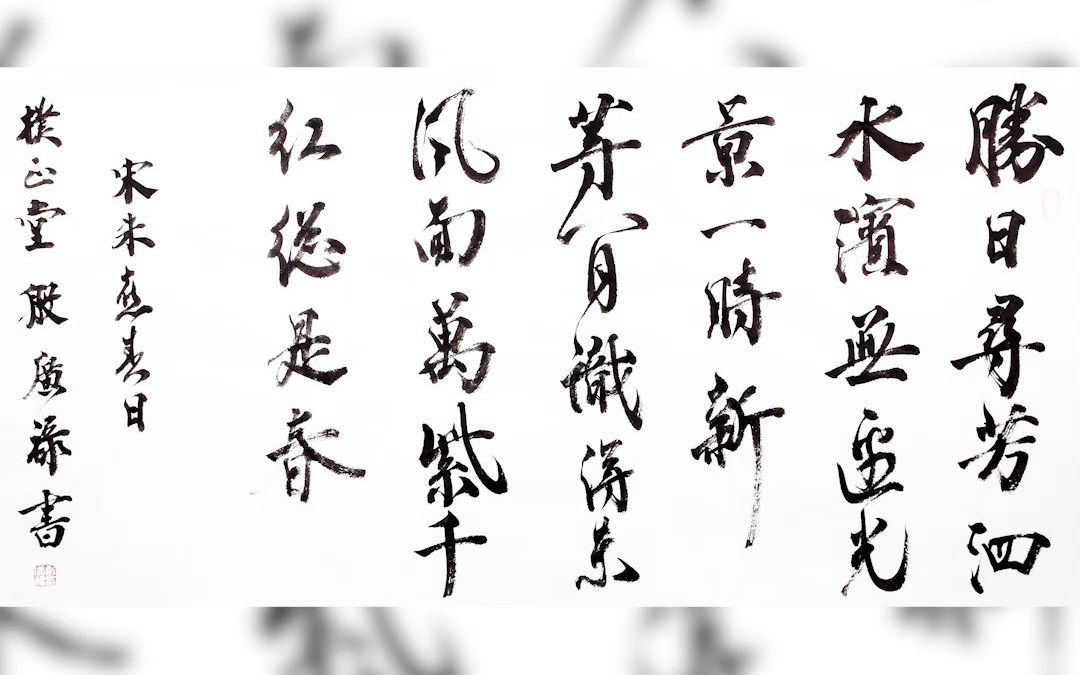 勝日尋芳泗
水濱無邊光
景一時新
等閒識得東
風面萬紫千
紅總是春
宋朱熹春日
樸正堂殷廣祿書